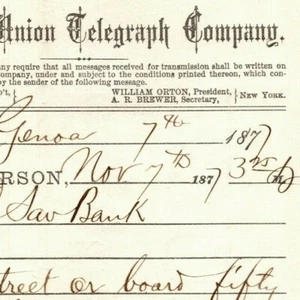 Union Telegraph Company.
any require that all messages received for transmission shall be written on
ompany, under and subject to the conditions printed thereon, which con-
by the sender of the following message.
o't, } WILLIAM ORTON, President, } NEW YORK.
A. R. BREWER, Secretary,
Genoa 7th 1877
ERSON, Nov 7th 1877 3
Sav Bank
treet or board fifty